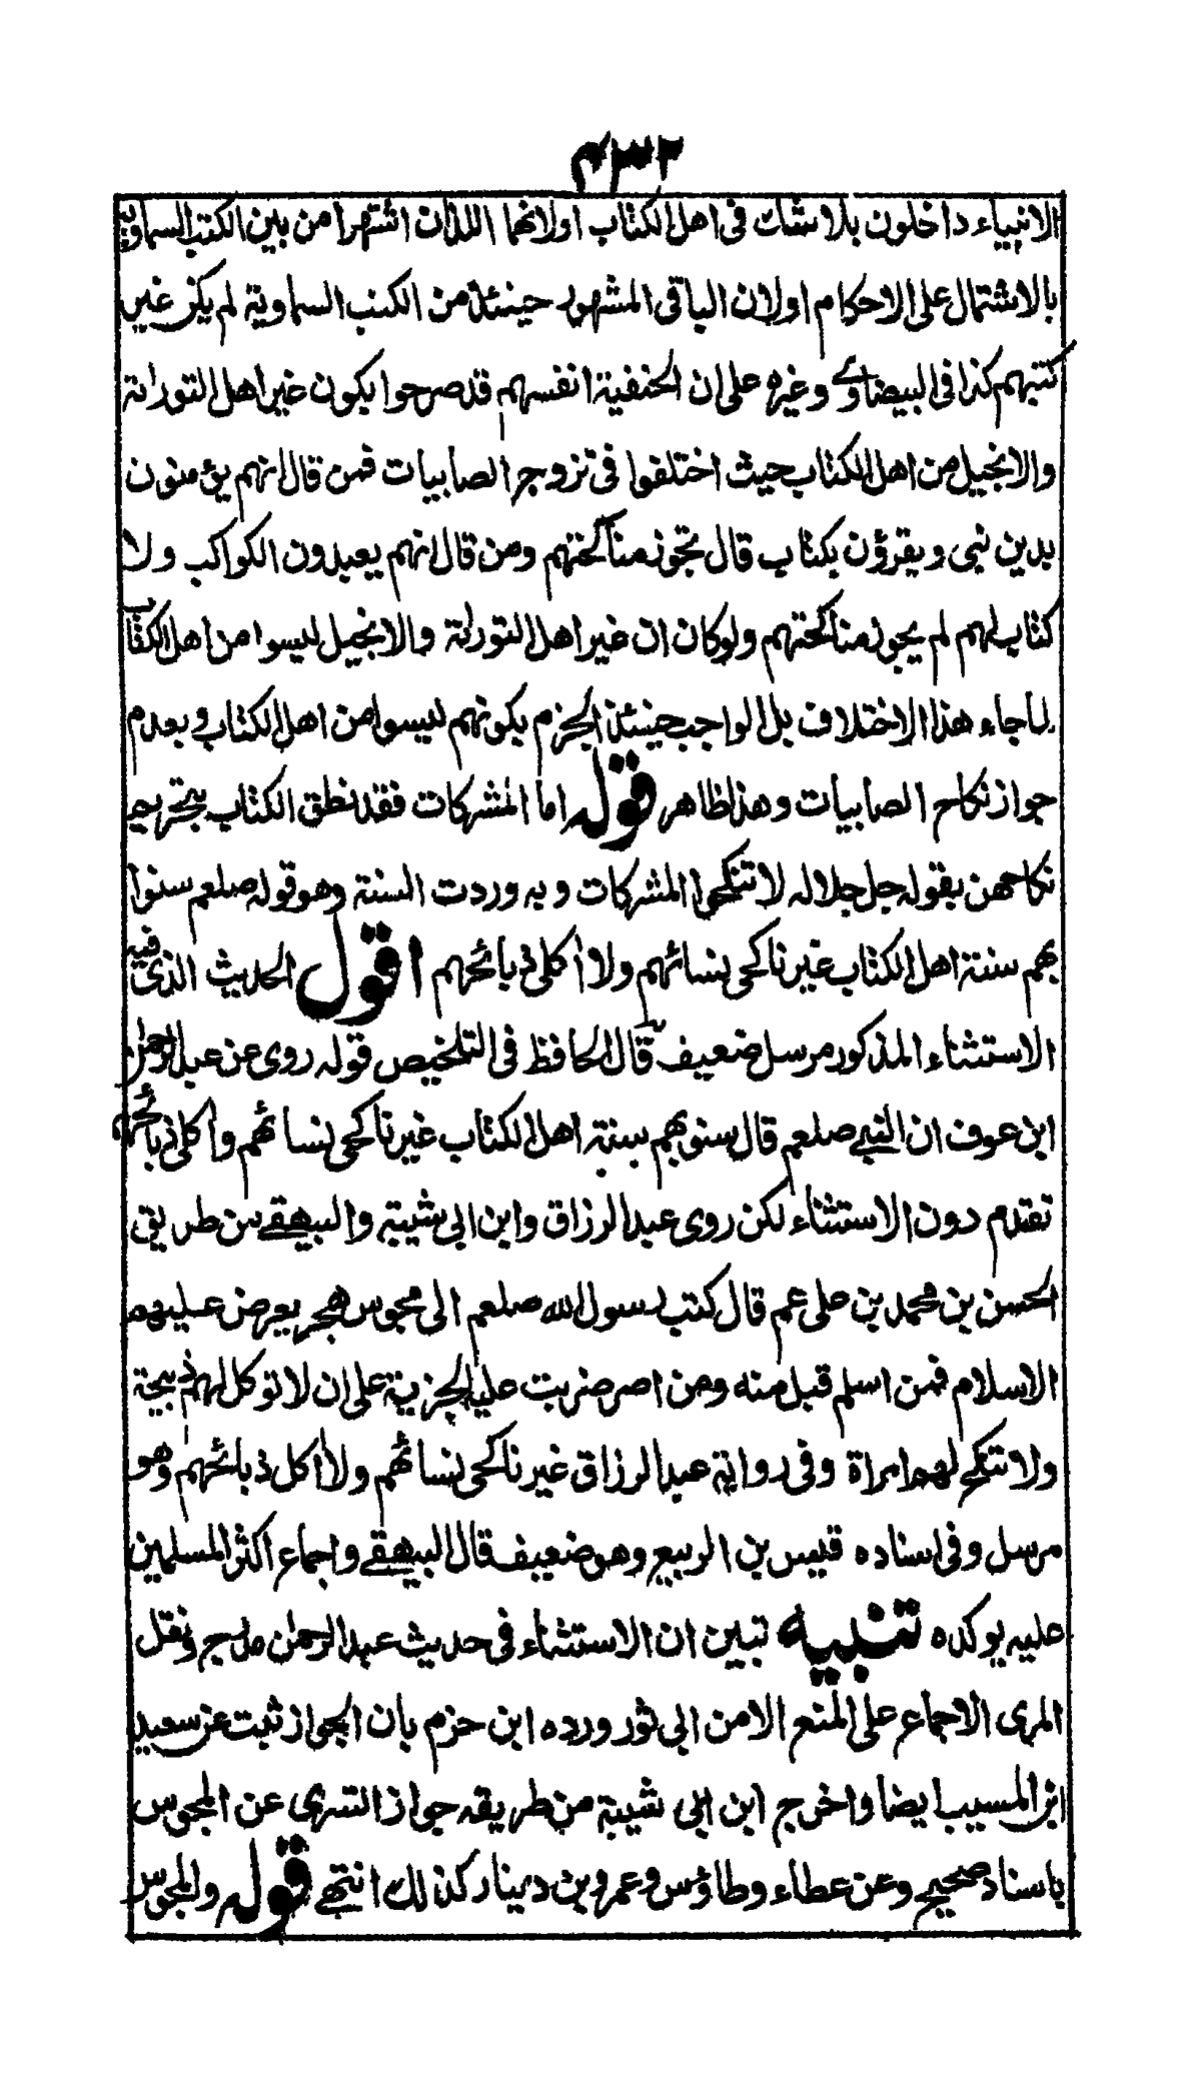 ۴۳۲
الانبياء داخلون بلا شك فى اهل الكتاب اولانهما اللذان اشتهرا من بين الكتب السماوية
بالاشتمال على الاحكام اولان الباقى المشهور حينئذ من الكتب السماوية لم يكن غير
كتبهم كذا فى البيضاوے وغيره على ان الحنفية انفسهم قد صرحوا بكون غير اهل التوراىة
والانجيل من اهل الكتاب حيث اختلفوا فى تزوجر الصابيات فمن قال انهم يؤمنون
بدين نبى ويقرؤن بكتاب قال تجوز مناكحتهم ومن قال انهم يعبدون الكواكب ولا
كتاب لهم لم يجوز مناكحتهم ولو كان ان غير اهل التوراىة والانجيل ليسوا من اهل الكتاب
لما جاء هذا الاختلاف بل الواجب حينئذ الجزم بكونهم ليسوا من اهل الكتاب وبعدم
جواز نكاح الصابيات وهذا ظاهر قوله اما المشركات فقد نطق الكتاب بتحريم
نكاحهن بقوله جل جلاله لا تنكحوا المشركات وبه وردت السنة وهو قوله صلعم سنوا
بهم سنة اهل الكتاب غير ناكحى نسائهم ولا اكلى ذبائحهم اقول الحديث الذى فيه
الاستثناء المذكور مرسل ضعيف قال الحافظ فى التلخيص قوله روى عن عبد الرحمن
ابن عوف ان النبے صلعم قال سنو بهم سنة اهل الكتاب غير ناكحى نسائهم واكلى ذبائحهم
تقدم دون الاستثناء لكن روى عبد الرزاق وابن ابى شيبة والبيهقے من طريق
الحسن بن محمد بن على عم قال كتب رسول الله صلعم الى مجوس هجر يعرض عليهم
الاسلام فمن اسلم قبل منه ومن اصر ضربت عليه الجزية على ان لا توكل لهم ذبيحة
ولا تنكح لهم امراة وفى رواية عبد الرزاق غير ناكحى نسائهم ولا اكل ذبائحهم وهو
مرسل وفى اسناده قيس بن الربيع وهو ضعيف قال البيهقے واجماع اكثر المسلمين
عليه يوكده تنبيه تبين ان الاستثناء فى حديث عبد الرحمن مدرج ونقل
المرى الاجماع على المنع الامن ابى ثور ورده ابن حزم بان الجواز ثبت عن سعيد
ابن المسيب ايضا واخرج ابن ابى شيبة من طريقه جواز التسرى عن المجوس
باسناد صحيح وعن عطاء وطاؤس وعمرو بن دينار كذلك انتهے قوله والمجوس